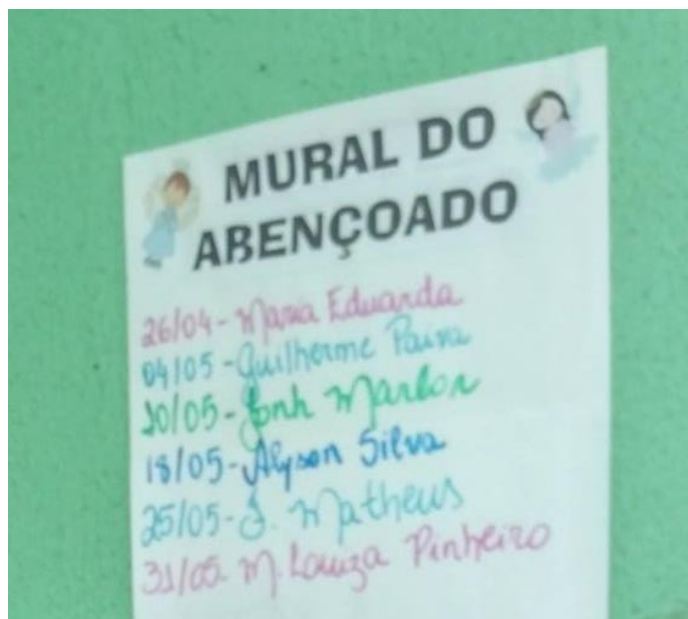 MURAL DO
ABENÇOADO
26/04 - Maria Eduarda
04/05 - Guilherme Paiva
10/05 - Jonh Marlon
18/05 - Alyson Silva
25/05 - J. Matheus
31/05 - M. Louiza Pinheiro